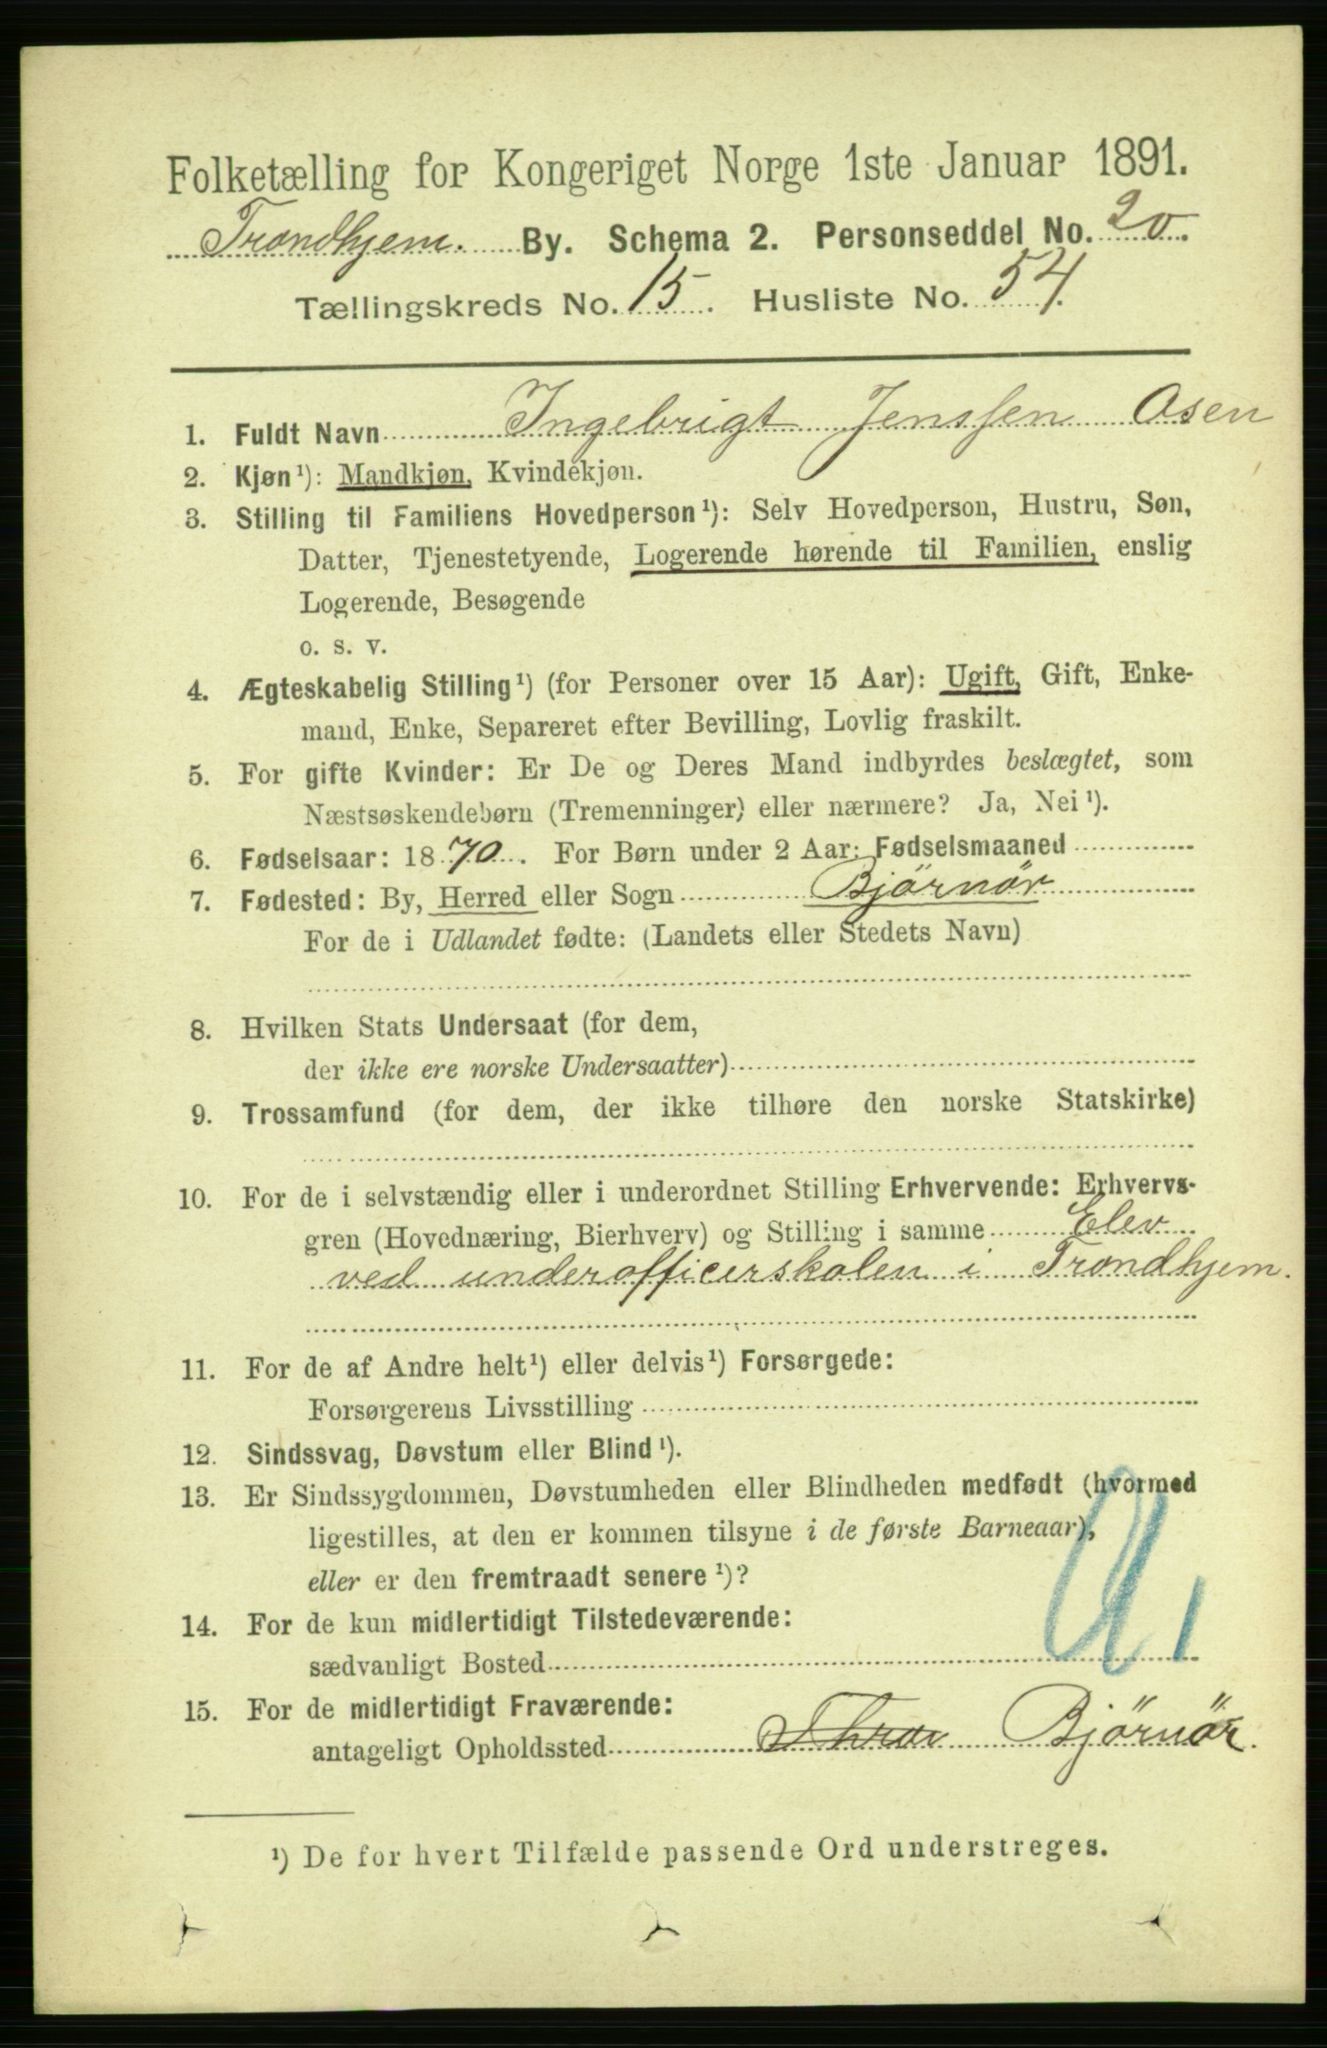 Folketælling for Kongeriget Norge 1ste Januar 1891.
Trondhjem. By. Schema 2. Personseddel No. 20.
Tællingskreds No. 15. Husliste No. 54.
1. Fuldt Navn Ingebrigt Jenssen Osen
2. Kjøn¹): Mandkjøn, Kvindekjøn.
3. Stilling til Familiens Hovedperson¹): Selv Hovedperson, Hustru, Søn,
Datter, Tjenestetyende, Logerende hørende til Familien, enslig
Logerende, Besøgende
o. s. v.
4. Ægteskabelig Stilling¹) (for Personer over 15 Aar): Ugift, Gift, Enke-
mand, Enke, Separeret efter Bevilling, Lovlig fraskilt.
5. For gifte Kvinder: Er De og Deres Mand indbyrdes beslægtet, som
Næstsøskendebørn (Tremenninger) eller nærmere? Ja, Nei¹).
6. Fødselsaar: 1870. For Børn under 2 Aar: Fødselsmaaned
7. Fødested: By, Herred eller Sogn Bjørnör
For de i Udlandet fødte: (Landets eller Stedets Navn)
8. Hvilken Stats Undersaat (for dem,
der ikke ere norske Undersaatter)
9. Trossamfund (for dem, der ikke tilhøre den norske Statskirke)
10. For de i selvstændig eller i underordnet Stilling Erhvervende: Erhvervs-
gren (Hovednæring, Bierhverv) og Stilling i samme Elev
ved underofficerskolen i Trondhjem.
11. For de af Andre helt¹) eller delvis¹) Forsørgede:
Forsørgerens Livsstilling
12. Sindssvag, Døvstum eller Blind¹).
13. Er Sindssygdommen, Døvstumheden eller Blindheden medfødt (hvormed
ligestilles, at den er kommen tilsyne i de første Barneaar),
eller er den fremtraadt senere¹)?
14. For de kun midlertidigt Tilstedeværende:
sædvanligt Bosted
15. For de midlertidigt Fraværende:
antageligt Opholdssted Bjørnör.
¹) De for hvert Tilfælde passende Ord understreges.